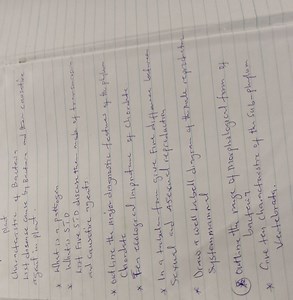 Characteristics of Bacteria
List disease caused by Bacteria and their causative
agent in plant
* What is pathogen
* What is S.T.D
List five S.T.D discuss their mode of transmission
and causative agents
* outline the major diagnostic features of the phylum
Chordata
* Ten ecological importance of Chordata
* In a tabular form give five difference between
Sexual and Asexual reproduction
* Draw a well label diagram of the male reproductive
System
* Outline the range of Morphological form of
bacteria
* Give ten characteristics of the Sub-phylum
Vertebrata.